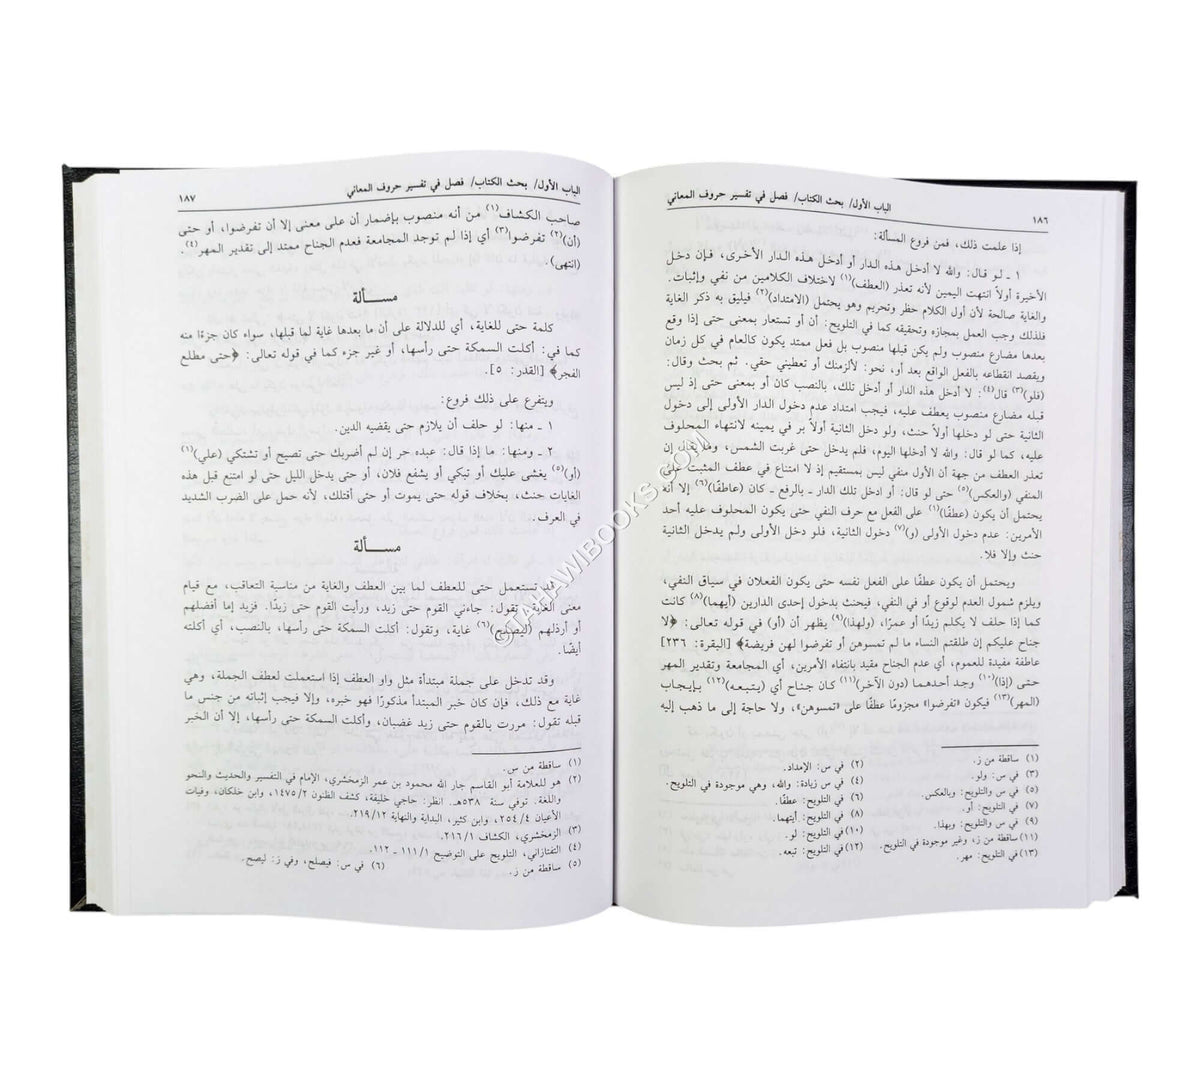 الباب الأول/ بحث الكتاب/ فصل في تفسير حروف المعاني
١٨٦
إذا علمت ذلك، فمن فروع المسألة:
١ ـ لو قال: والله لا أدخل هذه الدار أو أدخل هذه الدار الأخرى، فإن دخل
الأخيرة أولاً انتهت اليمين لأنه تعذر (العطف)(١) لاختلاف الكلامين من نفي وإثبات.
والغاية صالحة لأن أول الكلام حظر وتحريم وهو يحتمل (الامتداد)(٢) فيليق به ذكر الغاية
فلذلك وجب العمل بمجازه وتحقيقه كما في التلويح: أن أو تستعار بمعنى حتى إذا وقع
بعدها مضارع منصوب ولم يكن قبلها منصوب بل فعل ممتد يكون كالعام في كل زمان
ويقصد انقطاعه بالفعل الواقع بعد أو، نحو: لألزمنك أو تعطيني حقي. ثم بحث وقال:
(فلو)(٣) قال(٤): لا أدخل هذه الدار أو أدخل تلك، بالنصب كان أو بمعنى حتى إذ ليس
قبله مضارع منصوب يعطف عليه، فيجب امتداد عدم دخول الدار الأولى إلى دخول
الثانية حتى لو دخلها أولاً حنث، ولو دخل الثانية أولاً بر في يمينه لانتهاء المحلوف
عليه، كما لو قال: والله لا أدخلها اليوم، فلم يدخل حتى غربت الشمس، وما يقال إن
تعذر العطف من جهة أن الأول منفي ليس بمستقيم إذ لا امتناع في عطف المثبت على
المنفي (والعكس)(٥) حتى لو قال: أو ادخل تلك الدار ـ بالرفع ـ كان (عاطفًا)(٦) إلا أنه
يحتمل أن يكون (عطفًا)(١) على الفعل مع حرف النفي حتى يكون المحلوف عليه أحد
الأمرين: عدم دخول الأولى (و)(٧) دخول الثانية، فلو دخل الأولى ولم يدخل الثانية
حنث وإلا فلا.
ويحتمل أن يكون عطفًا على الفعل نفسه حتى يكون الفعلان في سياق النفي،
ويلزم شمول العدم لوقوع أو في النفي، فيحنث بدخول إحدى الدارين (أيهما)(٨) كانت
كما إذا حلف لا يكلم زيدًا أو عمرًا، (ولهذا)(٩) يظهر أن (أو) في قوله تعالى: ﴿لا
جناح عليكم إن طلقتم النساء ما لم تمسوهن أو تفرضوا لهن فريضة﴾ [البقرة: ٢٣٦]
عاطفة مفيدة للعموم، أي عدم الجناح مقيد بانتفاء الأمرين، أي المجامعة وتقدير المهر
حتى (إذا)(١٠) وجد أحدهما (دون الآخر)(١١) كان جناح أي (يتبعه)(١٢) بإيجاب
(المهر)(١٣) فيكون «تفرضوا» مجزومًا عطفًا على «تمسوهن»، ولا حاجة إلى ما ذهب إليه
(١) ساقطة من ز.
(٢) في س: الإمداد.
(٣) في س: ولو.
(٤) في س زيادة: والله، وهي موجودة في التلويح.
(٥) في س والتلويح: وبالعكس.
(٦) في التلويح: عطفًا.
(٧) في التلويح: أو.
(٨) في التلويح: أيتهما.
(٩) في س والتلويح: وبهذا.
(١٠) في التلويح: لو.
(١١) ساقطة من ز، وغير موجودة في التلويح.
(١٢) في التلويح: تبعه.
(١٣) في التلويح: مهر.
الباب الأول/ بحث الكتاب/ فصل في تفسير حروف المعاني
١٨٧
صاحب الكشاف(١) من أنه منصوب بإضمار أن على معنى إلا أن تفرضوا، أو حتى
(أن)(٢) تفرضوا(٣) أي إذا لم توجد المجامعة فعدم الجناح ممتد إلى تقدير المهر(٤).
(انتهى).
مسألة
كلمة حتى للغاية، أي للدلالة على أن ما بعدها غاية لما قبلها، سواء كان جزءًا منه
كما في: أكلت السمكة حتى رأسها، أو غير جزء كما في قوله تعالى: ﴿حتى مطلع
الفجر﴾ [القدر: ٥].
ويتفرع على ذلك فروع:
١ ـ منها: لو حلف أن يلازم حتى يقضيه الدين.
٢ ـ ومنها: ما إذا قال: عبده حر إن لم أضربك حتى تصيح أو تشتكي (علي)(١)
(أو)(٥) يغشى عليك أو تبكي أو يشفع فلان، أو حتى يدخل الليل حتى لو امتنع قبل هذه
الغايات حنث، بخلاف قوله حتى يموت أو حتى أقتلك، لأنه حمل على الضرب الشديد
في العرف.
مسألة
قد تستعمل حتى للعطف لما بين العطف والغاية من مناسبة التعاقب، مع قيام
معنى الغاية تقول: جاءني القوم حتى زيد، ورأيت القوم حتى زيدًا. فزيد إما أفضلهم
أو أرذلهم (ليصلح)(٦) غاية، وتقول: أكلت السمكة حتى رأسها، بالنصب، أي أكلته
أيضًا.
وقد تدخل على جملة مبتدأة مثل واو العطف إذا استعملت لعطف الجملة، وهي
غاية مع ذلك، فإن كان خبر المبتدأ مذكورًا فهو خبره، وإلا فيجب إثباته من جنس ما
قبله تقول: مررت بالقوم حتى زيد غضبان، وأكلت السمكة حتى رأسها، إلا أن الخبر
(١) ساقطة من س.
(٢) هو للعلامة أبو القاسم جار الله محمود بن عمر الزمخشري، الإمام في التفسير والحديث والنحو
واللغة. توفي سنة ٥٣٨هـ. انظر: حاجي خليفة، كشف الظنون ١٤٧٥/٢، وابن خلكان، وفيات
الأعيان ٢٥٤/٤، وابن كثير، البداية والنهاية ٢١٩/١٢.
(٣) الزمخشري، الكشاف ٢١٦/١.
(٤) التفتازاني، التلويح على التوضيح ١١١/١ ـ ١١٢.
(٥) ساقطة من ز.
(٦) في س: فيصلح، وفي ز: ليصح.
©TAHAWIBOOKS.COM